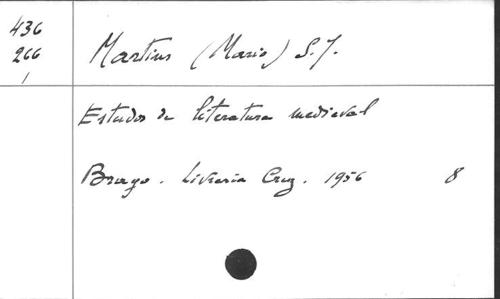 436
266
1
Martins (Mario) S.J.
Estudos de literatura medieval
Braga. Livraria Cruz. 1956 8